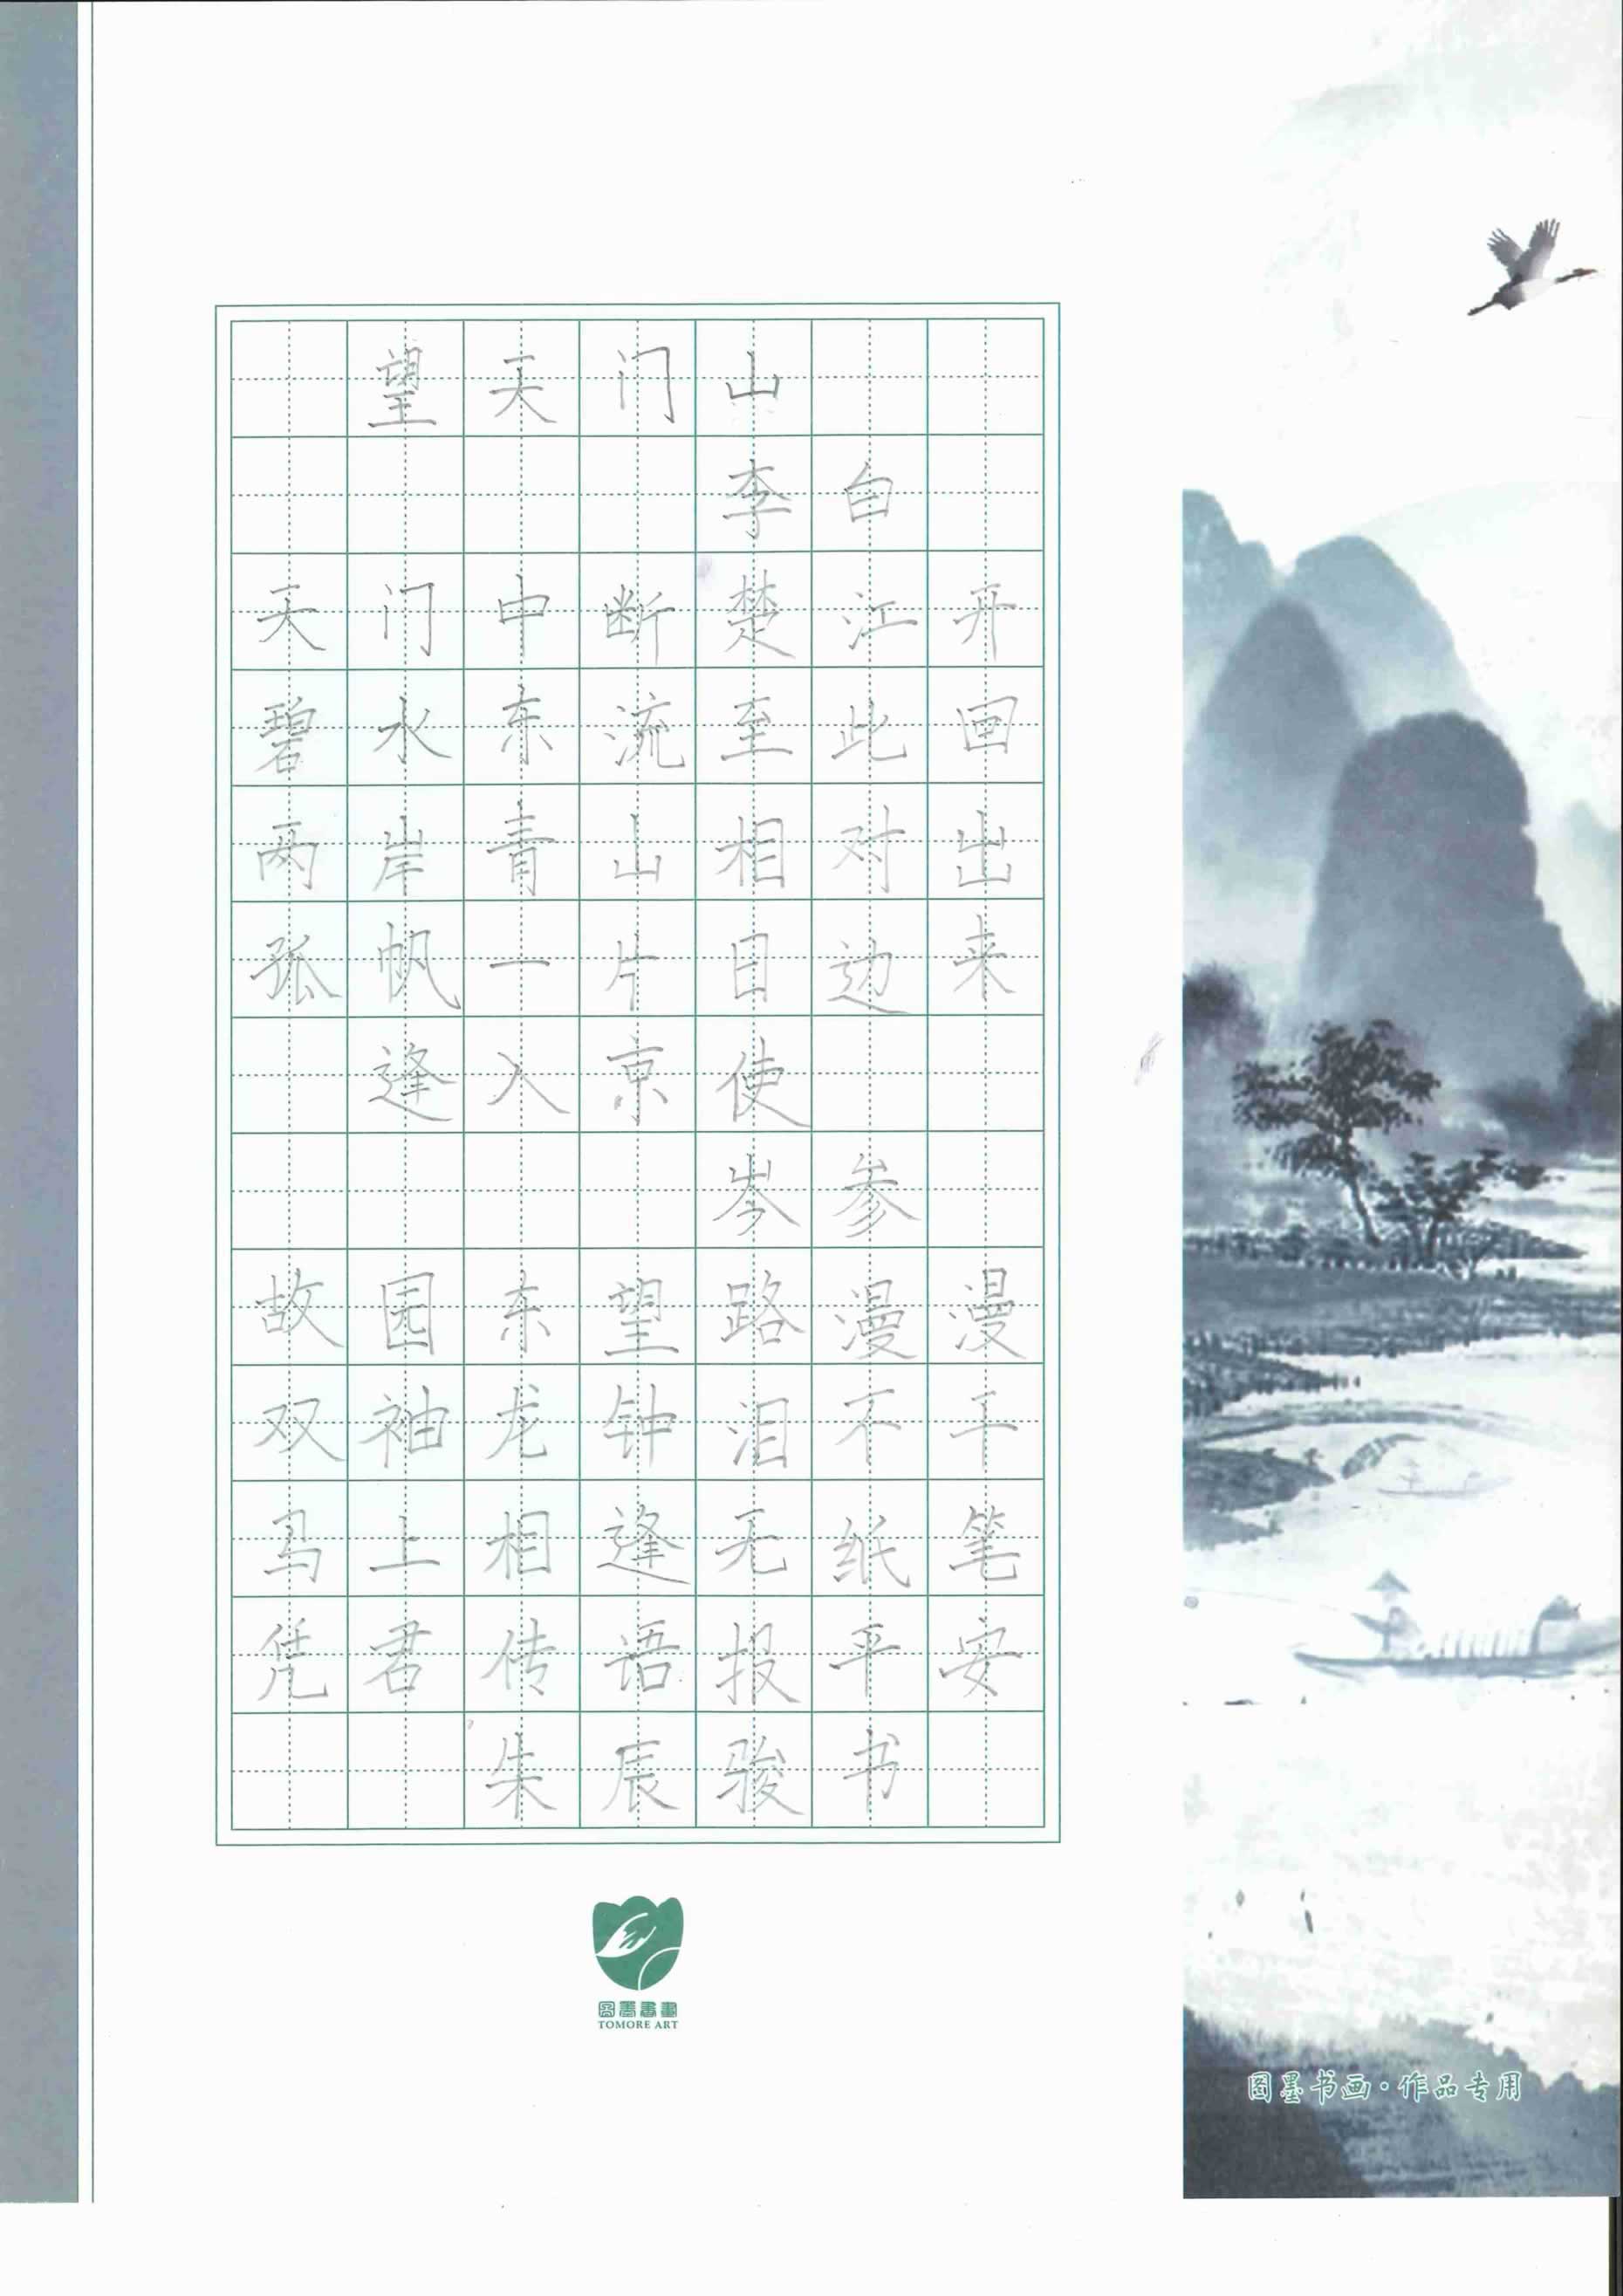 望天门山
李白
天门中断楚江开
碧水东流至此回
两岸青山相对出
孤帆一片日边来
逢入京使
岑参
故园东望路漫漫
双袖龙钟泪不干
马上相逢无纸笔
凭君传语报平安
朱辰骏书
图墨書畫
TOMORE ART
图墨书画·作品专用